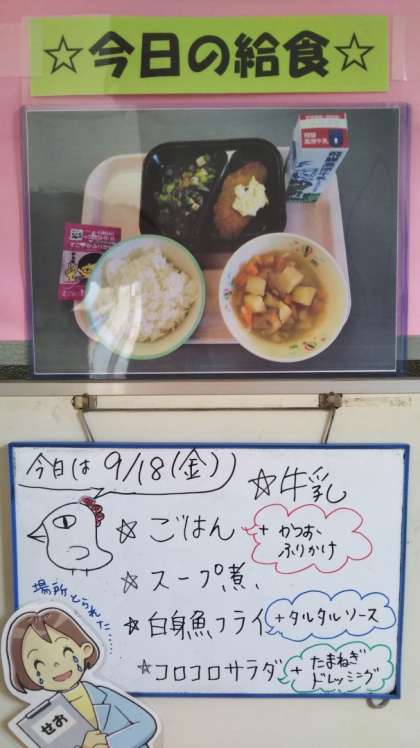 ☆今日の給食☆
今日は 9/18(金)
☆牛乳
☆ごはん
+ かつお
ふりかけ
☆スープ煮
☆白身魚フライ
+タルタルソース
☆コロコロサラダ
+ たまねぎ
ドレッシング
場所とられた……
せお